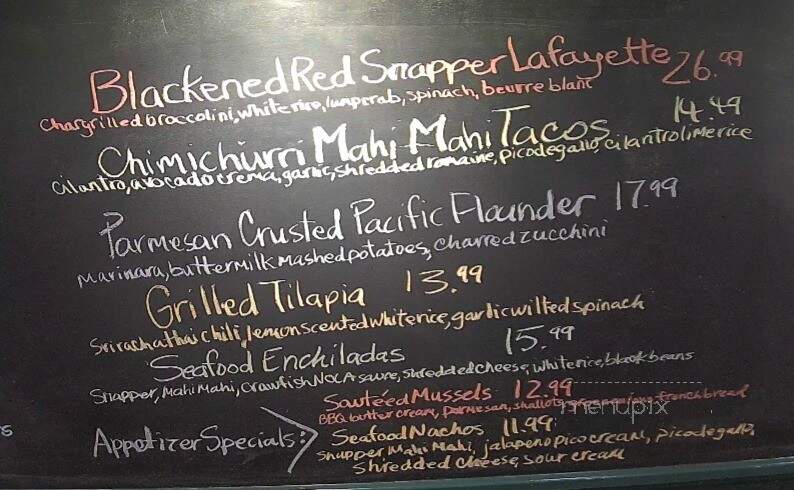 Blackened Red Snapper Lafayette 26.99
Chargrilled broccolini, white rice, lump crab, spinach, beurre blanc
Chimichurri Mahi Mahi Tacos 14.49
Cilantro, avocado crema, garlic, shredded romaine, pico de gallo, cilantro lime rice
Parmesan Crusted Pacific Flounder 17.99
Marinara, buttermilk mashed potatoes, charred zucchini
Grilled Tilapia 13.99
Sriracha thai chili, lemon scented white rice, garlic wilted spinach
Seafood Enchiladas 15.99
Snapper, Mahi Mahi, Crawfish NOLA sauce, shredded cheese, white rice, black beans
Appetizer Specials:
Sauteed Mussels 12.99
BBQ butter cream, parmesan, shallots, french bread
Seafood Nachos 11.99
Snapper, Mahi Mahi, jalapeno pico cream, pico de gallo,
Shredded cheese, sour cream
menupix